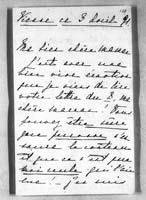 Vienne ce 3 Août 91
Ma bien chère maman
C'est avec une
bien vive émotion
que je viens de lire
votre lettre du 2, ma
chère maman! Vous
pouvez être sûre
que personne n'en
saura le contenu
et que ce n'est que
moi seule qui l'ai
lue - je suis